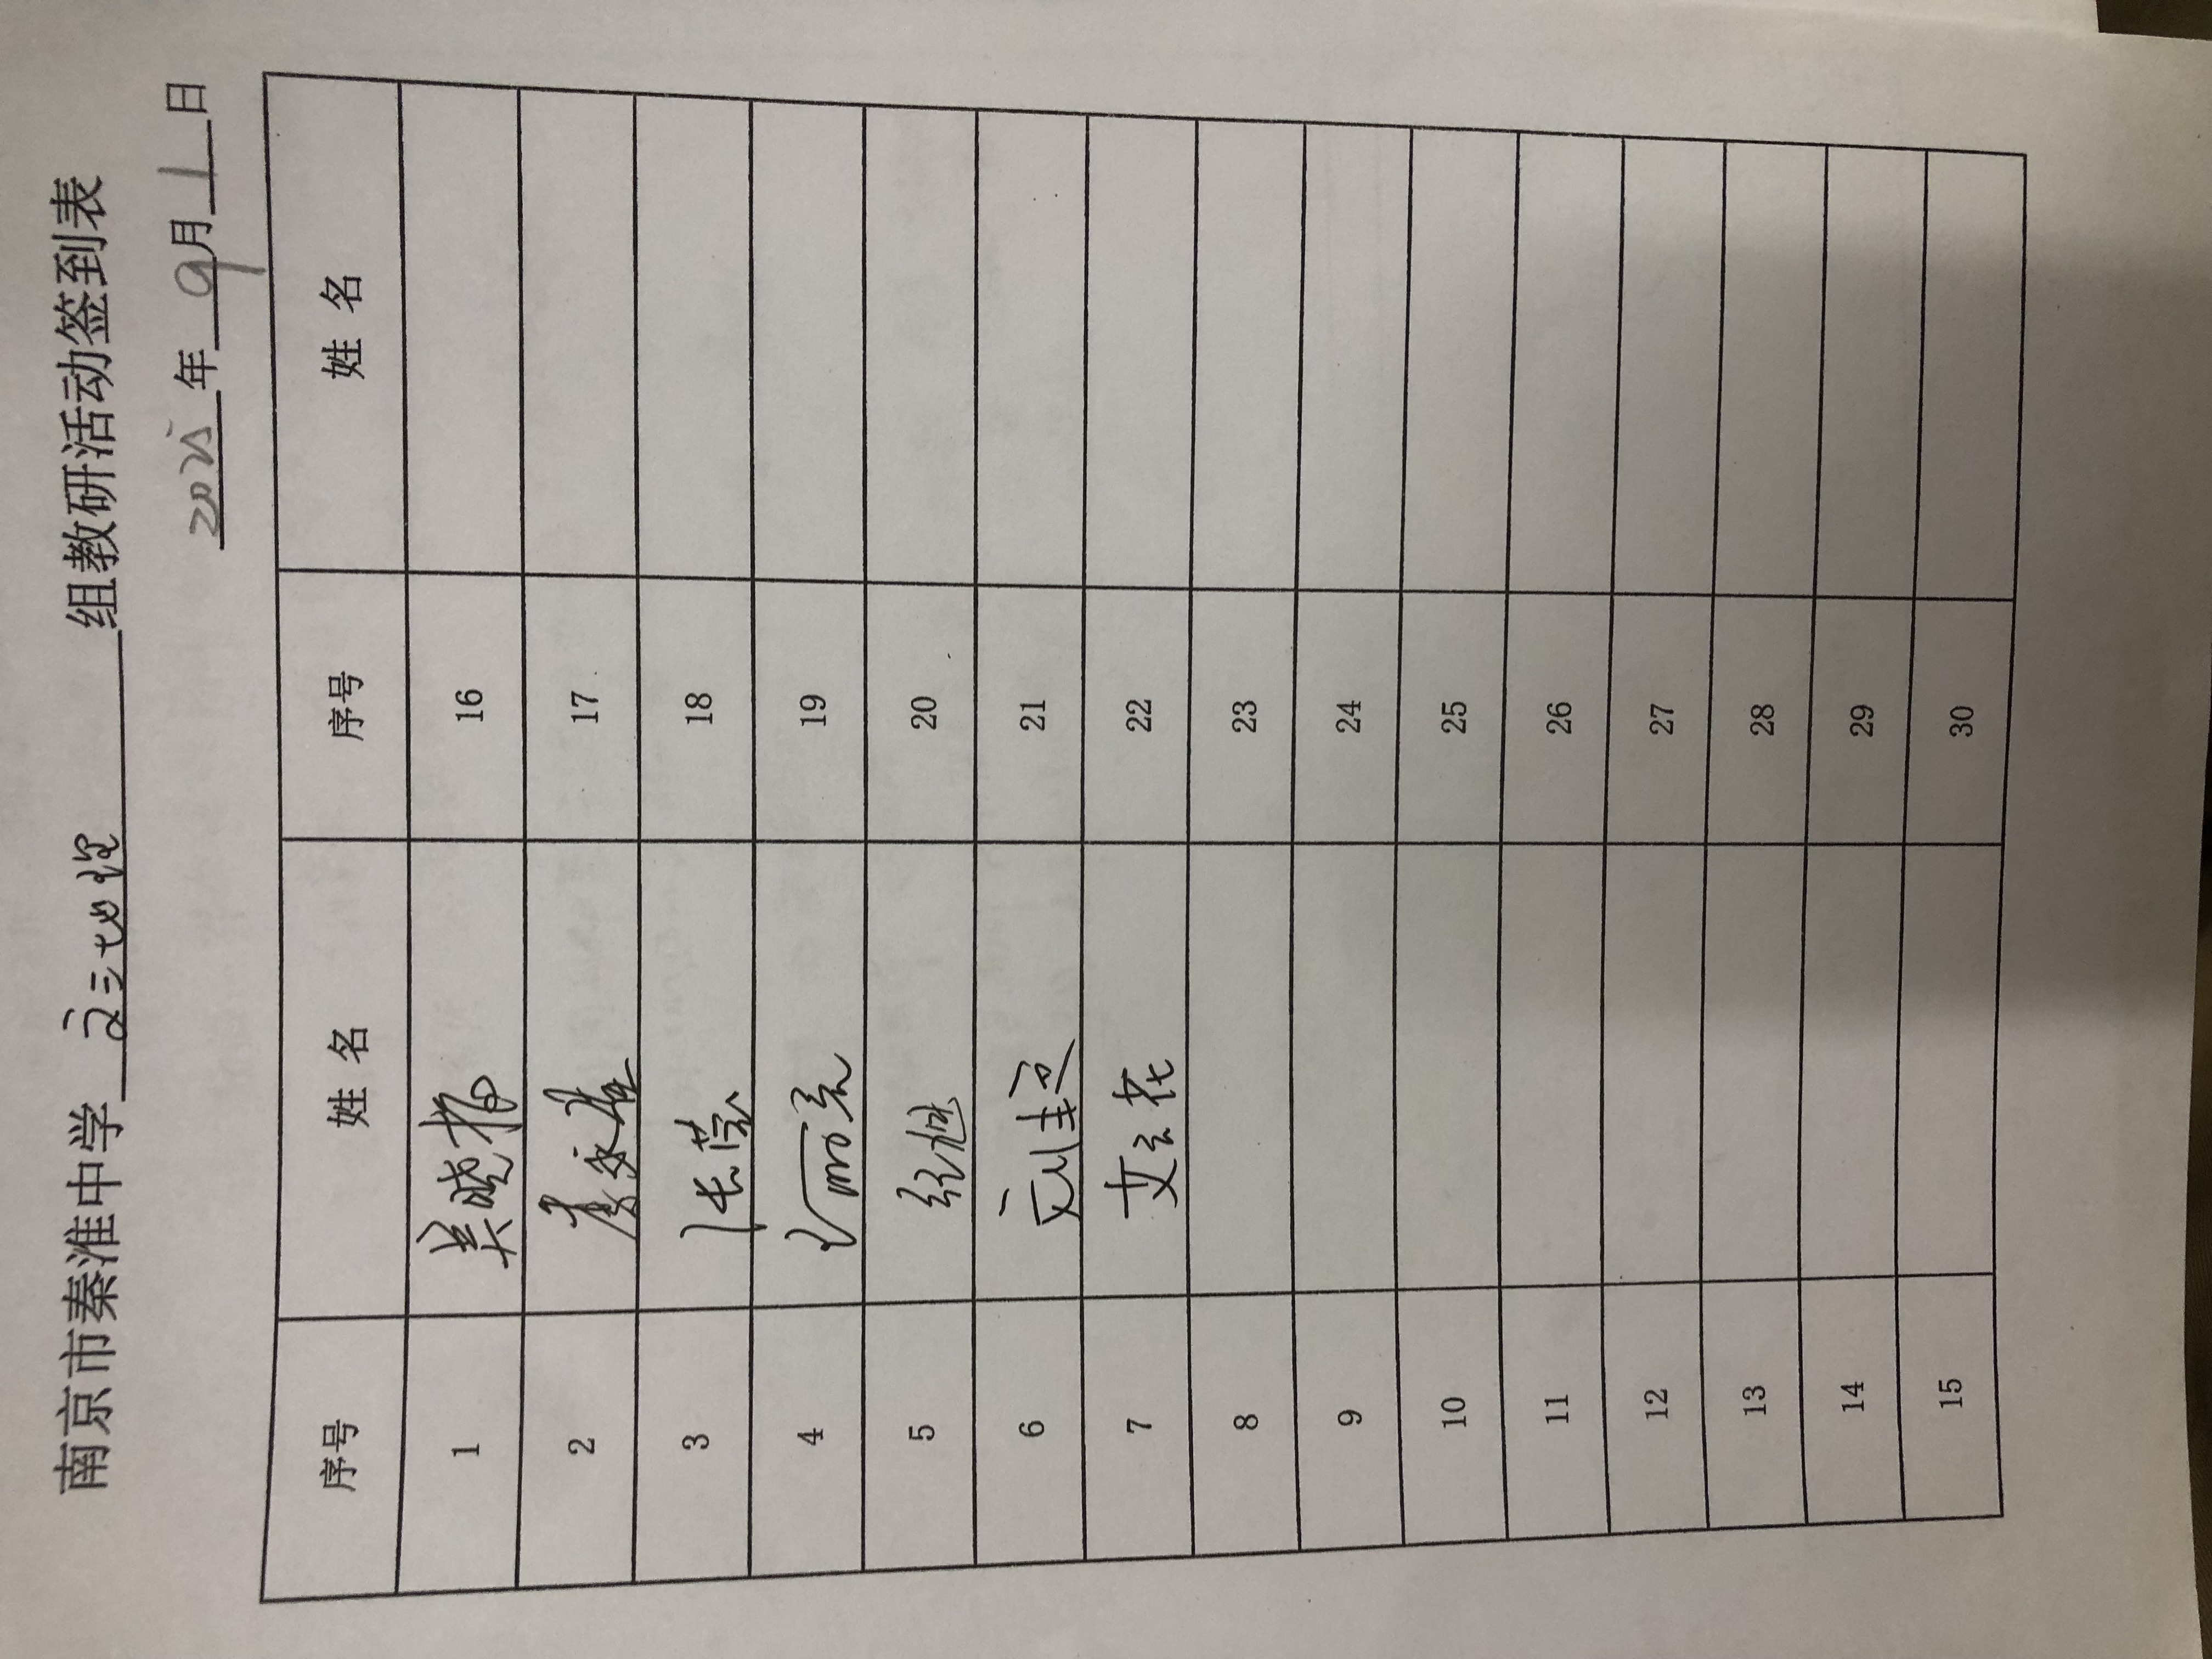 南京市秦淮中学 高三地理 组教研活动签到表
2025年 9月 1日
序号 姓 名 序号 姓 名
1 吴晓梅 16
2 17
3 张蓉 18
4 19
5 纪旭 20
6 刘佳 21
7 艾云花 22
8 23
9 24
10 25
11 26
12 27
13 28
14 29
15 30